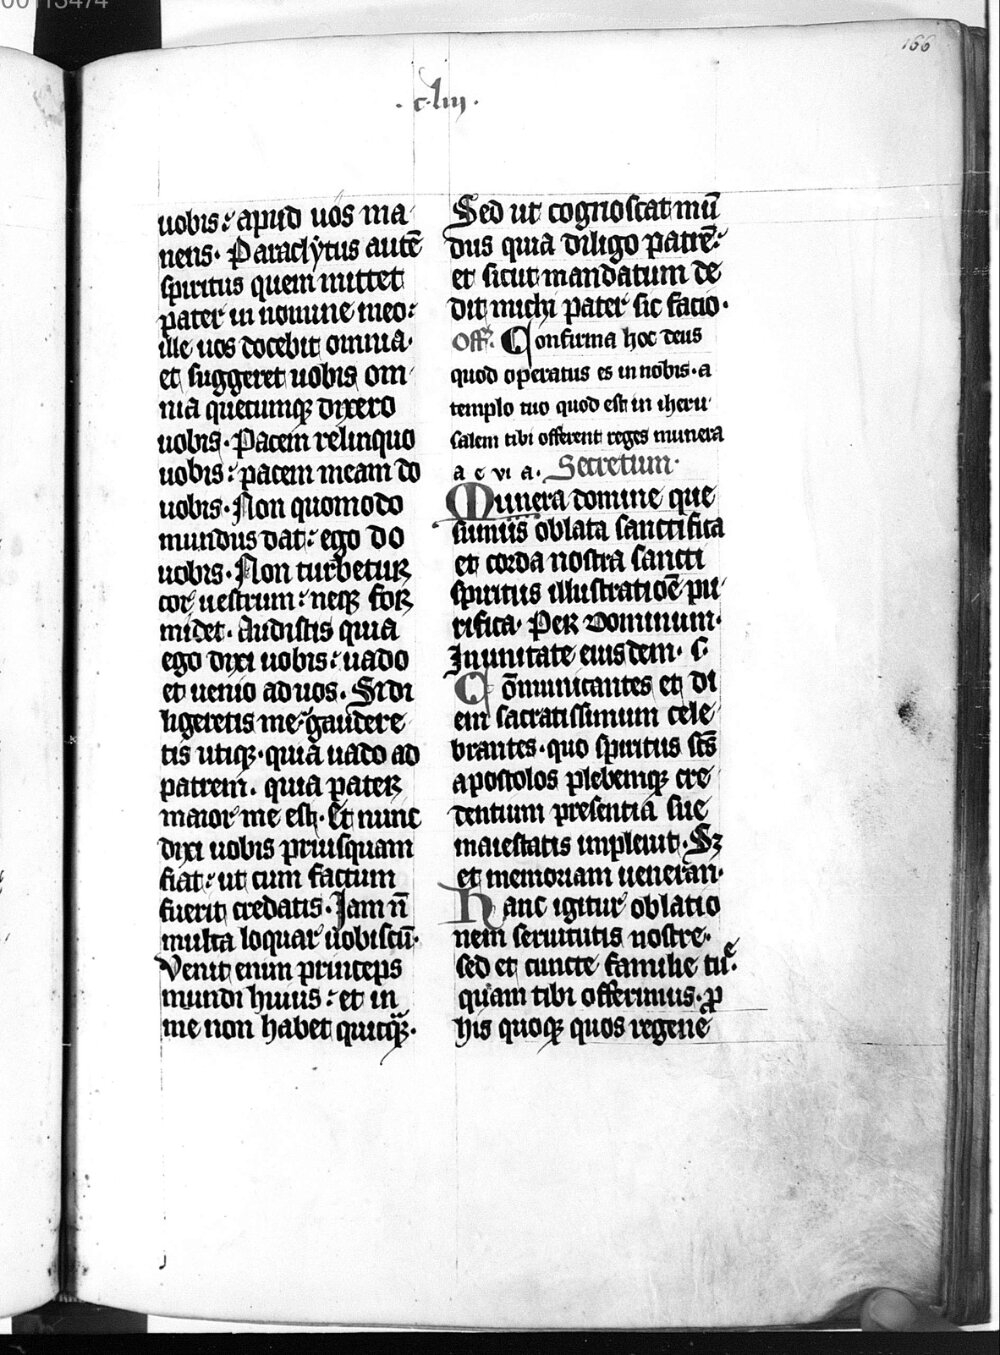 166
·c·liij·
uobis: apud uos ma
nens. Paraclytus autē
spiritus quem mittet
pater in nomine meo:
ille uos docebit omnia.
et suggeret uobis om
nia quecumqꝫ dixero
uobis. Pacem relinquo
uobis: pacem meam do
uobis. Non quomodo
mundus dat: ego do
uobis. Non turbetur
cor uestrum: neqꝫ for
midet. Audistis quia
ego dixi uobis: uado
et uenio ad uos. Si di
ligeretis me gaudere
tis utiqꝫ. quia uado ad
patrem. quia pater
maior me est. Et nunc
dixi uobis priusquam
fiat: ut cum factum
fuerit credatis. Jam nō
multa loquar uobiscū.
Venit enim princeps
mundi huius: et in
me non habet quicqꝫ.
Sed ut cognoscat mū
dus quia diligo patrē:
et sicut mandatum de
dit michi pater sic facio.
Off. Confirma hoc deus
quod operatus es in nobis. a
templo tuo quod est in iheru
salem tibi offerent reges munera
a e v i a. Secretum.
Munera domine que
sumus oblata sanctifica
et corda nostra sancti
spiritus illustratiōe pu
rifica. Per Dominum.
In unitate eiusdem. s.
Cōmunicantes et di
em sacratissimum cele
brantes. quo spiritus scs̄
apostolos plebemqꝫ cre
dentium presentia sue
maiestatis impleuit. Sꝫ
et memoriam ueneran.
Hanc igitur oblatio
nem seruitutis nostre.
sed et cuncte familie tue.
quam tibi offerimus. p
his quoqꝫ quos regene